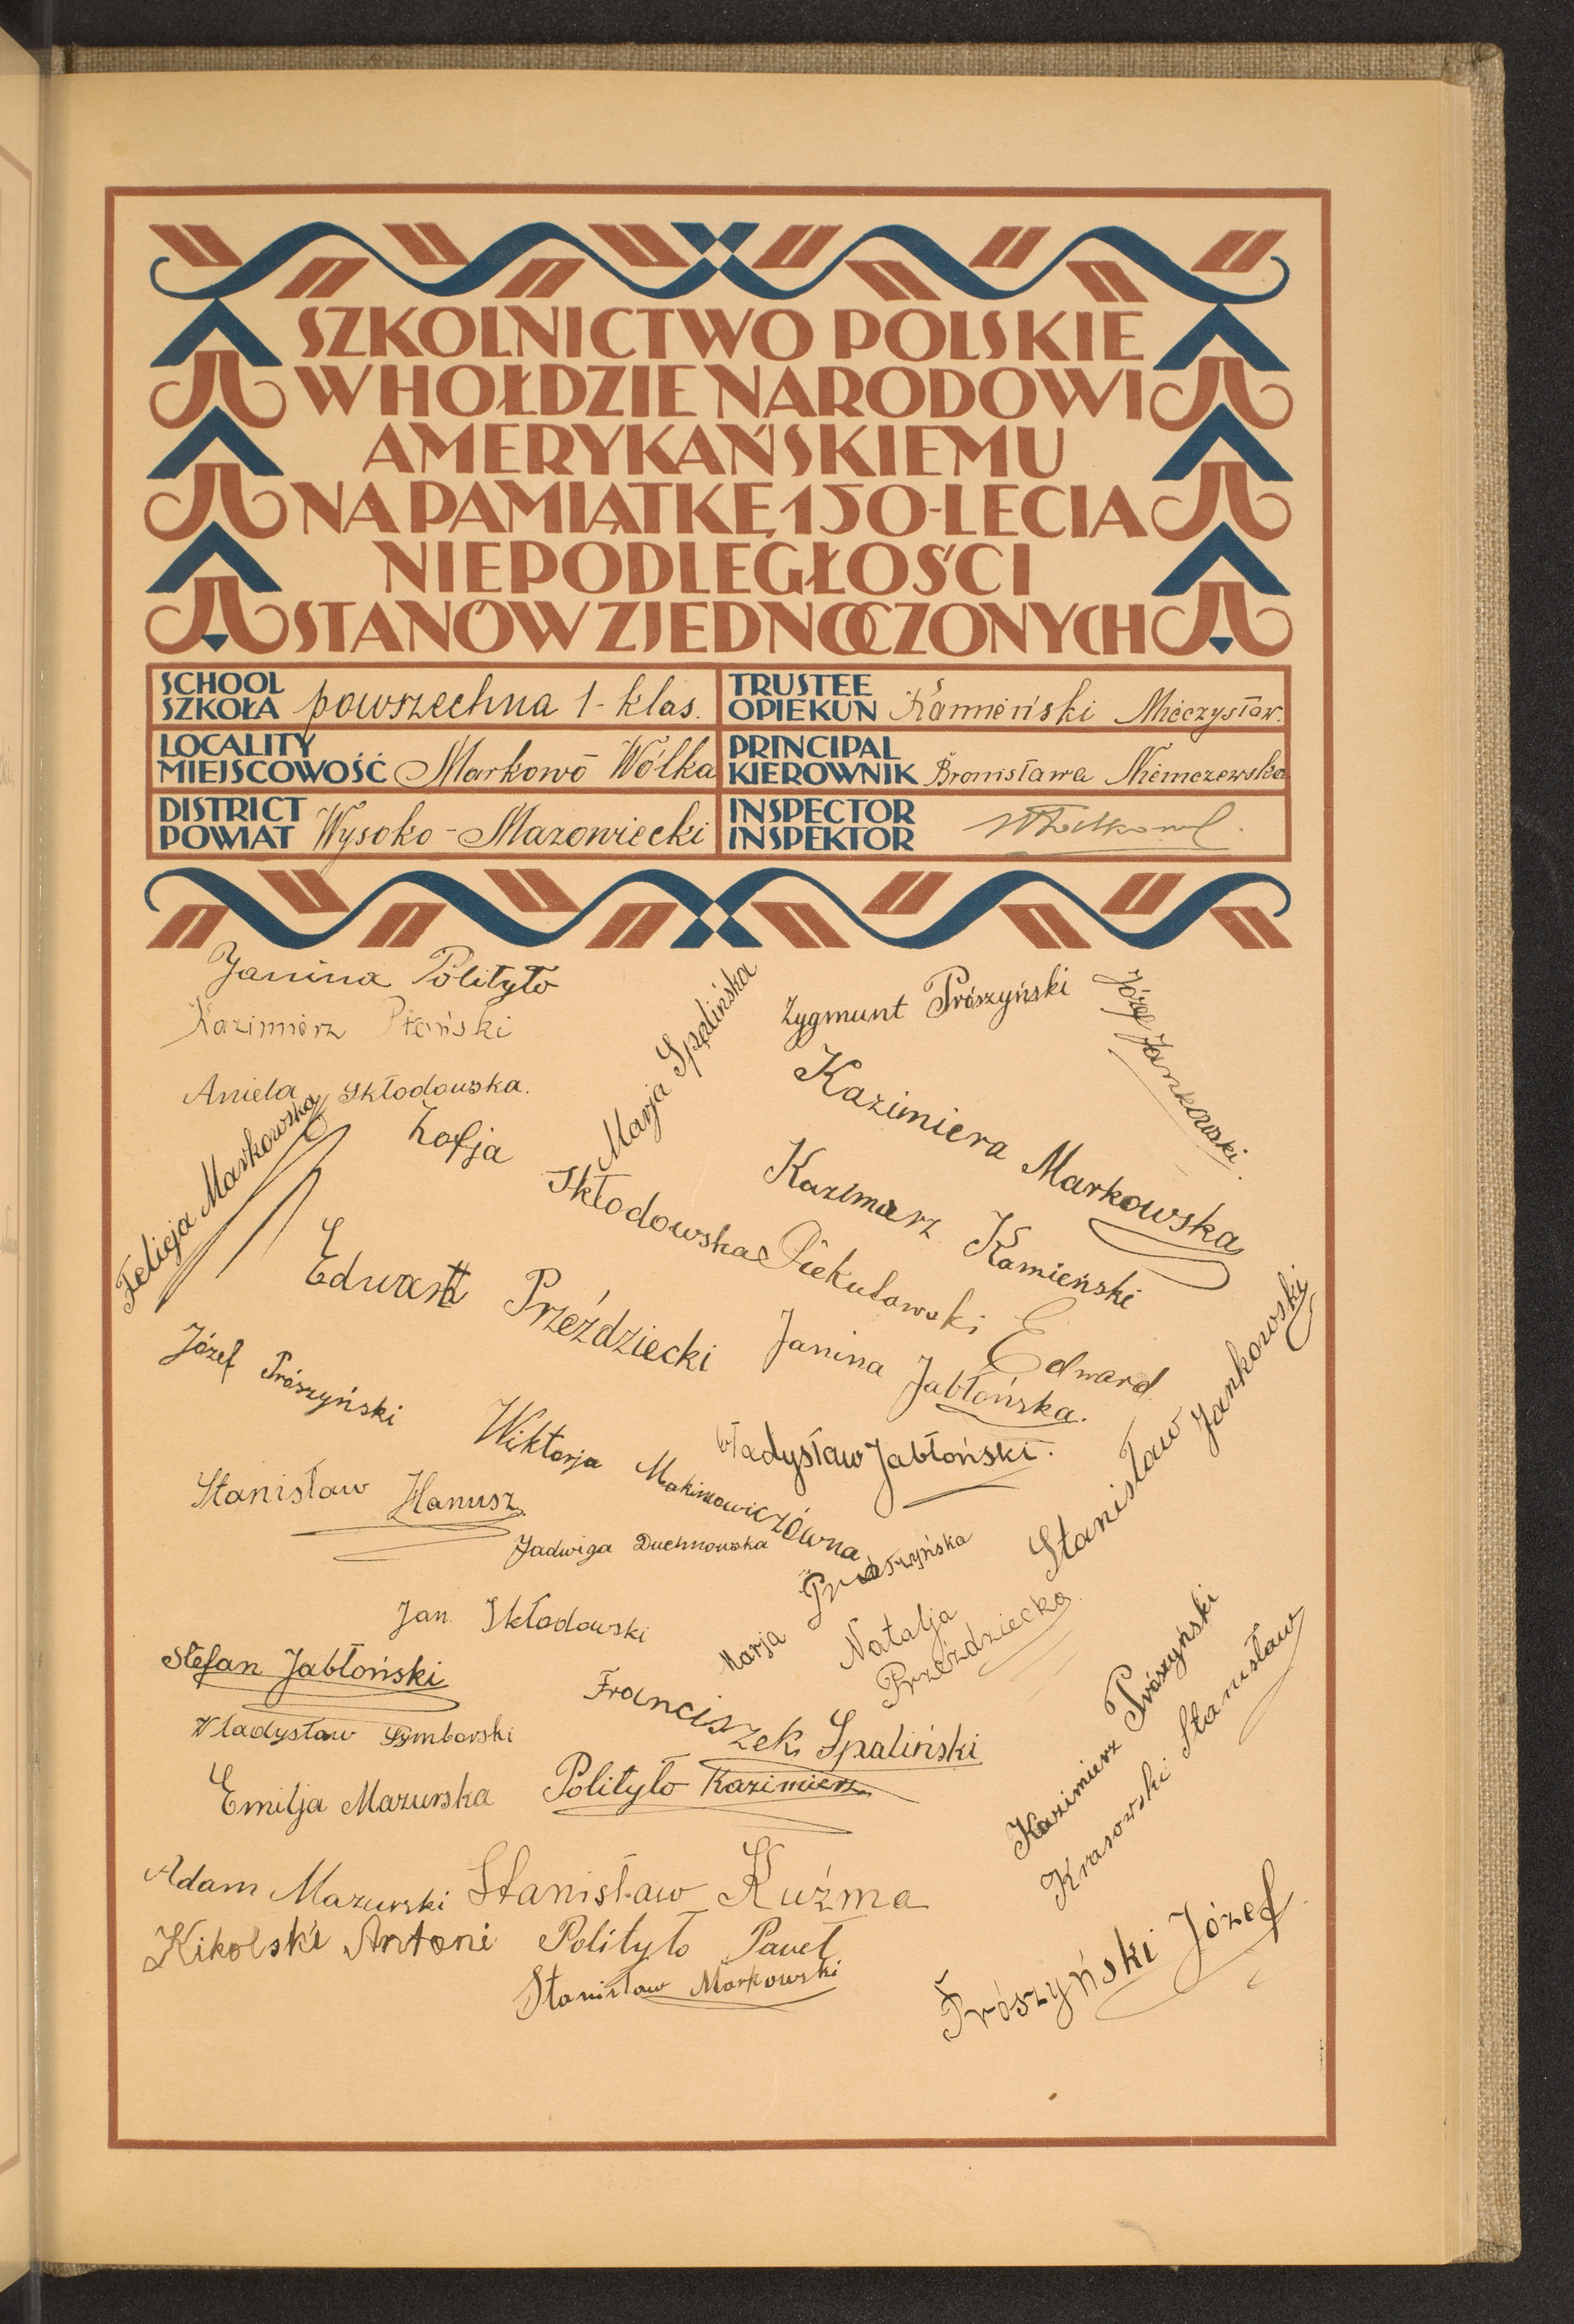 SZKOLNICTWO POLSKIE
W HOŁDZIE NARODOWI
AMERYKAŃSKIEMU
NA PAMIĄTKĘ 150-LECIA
NIEPODLEGŁOŚCI
STANÓW ZJEDNOCZONYCH
SCHOOL
SZKOŁA powszechna 1-klas.
TRUSTEE
OPIEKUN Kamieński Mieczysław.
LOCALITY
MIEJSCOWOŚĆ Markowo Wólka
PRINCIPAL
KIEROWNIK Bronisława Niemczewska
DISTRICT
POWIAT Wysoko-Mazowiecki
INSPECTOR
INSPEKTOR
Janina Polityło
Kazimierz Płoński
Aniela Skłodowska.
Felicja Markowska
Zofja Skłodowska
Marja Spalińska
Zygmunt Prószyński
Józef Jankowski
Kazimiera Markowska
Kazimierz Kamieński
Edward Przeździecki
Piekutowski Edward
Janina Jabłońska.
Józef Prószyński
Wiktorja Makimowiczówna
Władysław Jabłoński.
Stanisław Jankowski
Stanisław Hanusz
Jadwiga Duchnowska
Marja Prószyńska
Natalja Przeździecka
Jan Skłodowski
Stefan Jabłoński
Władysław Symborski
Franciszek Spaliński
Kazimierz Prószyński
Krasowski Stanisław
Emilja Mazurska
Polityło Kazimierz
Adam Mazurski
Stanisław Kuźma
Kikolski Antoni
Polityło Paweł
Stanisław Markowski
Prószyński Józef